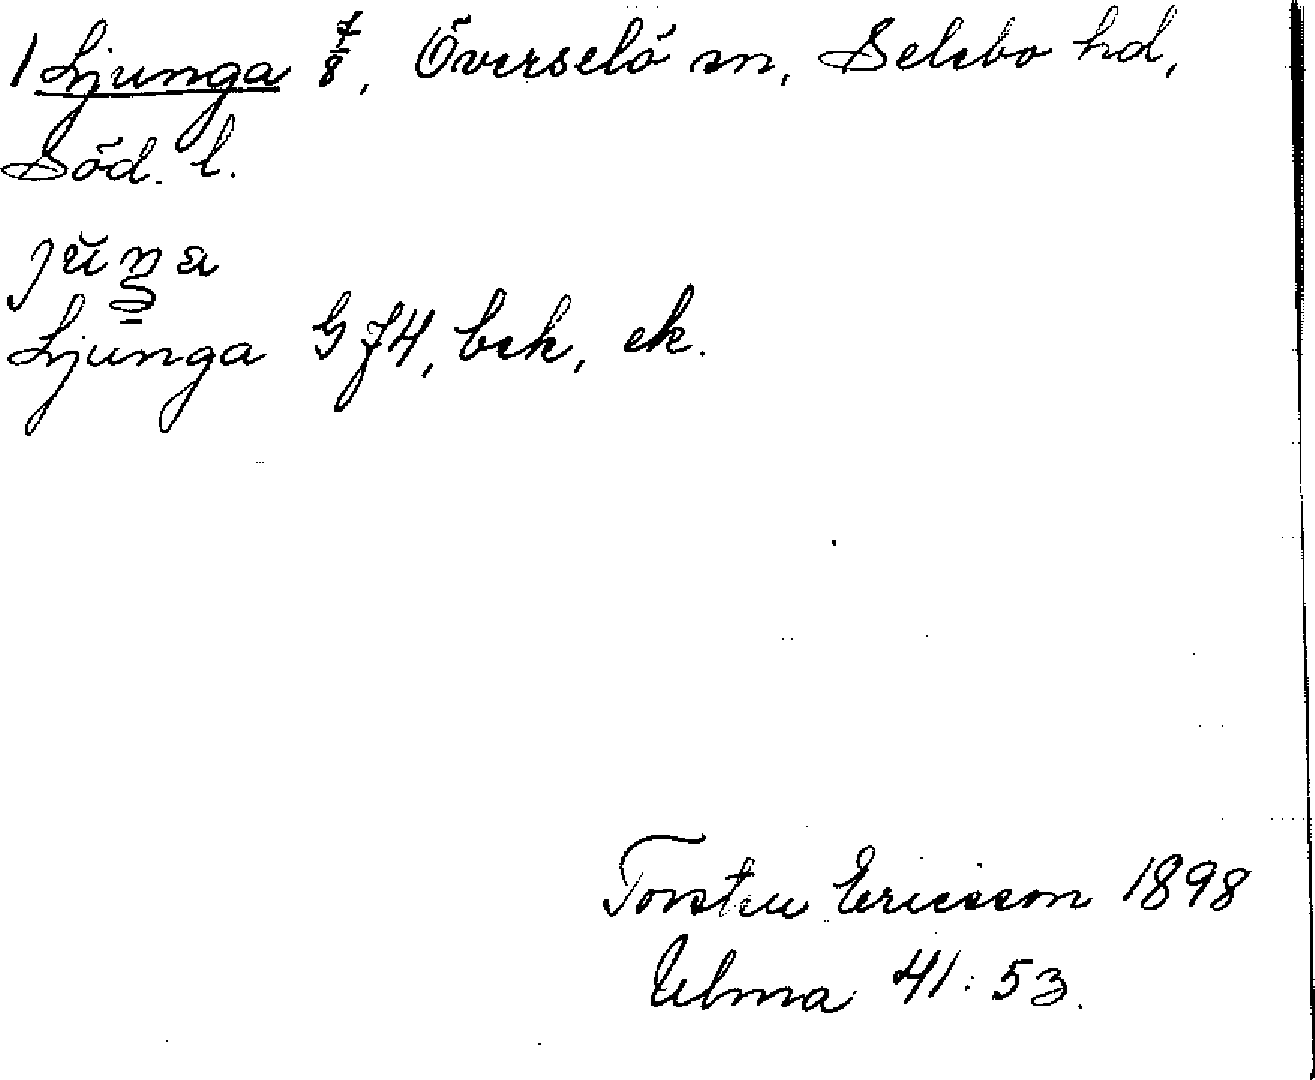 1 Ljunga 7/8, Överselö sn, Selebo hd,
Söd. l.
Ljunga G J4, bek, ek.
Torsten Ericsson 1898
Ulma 41:53.